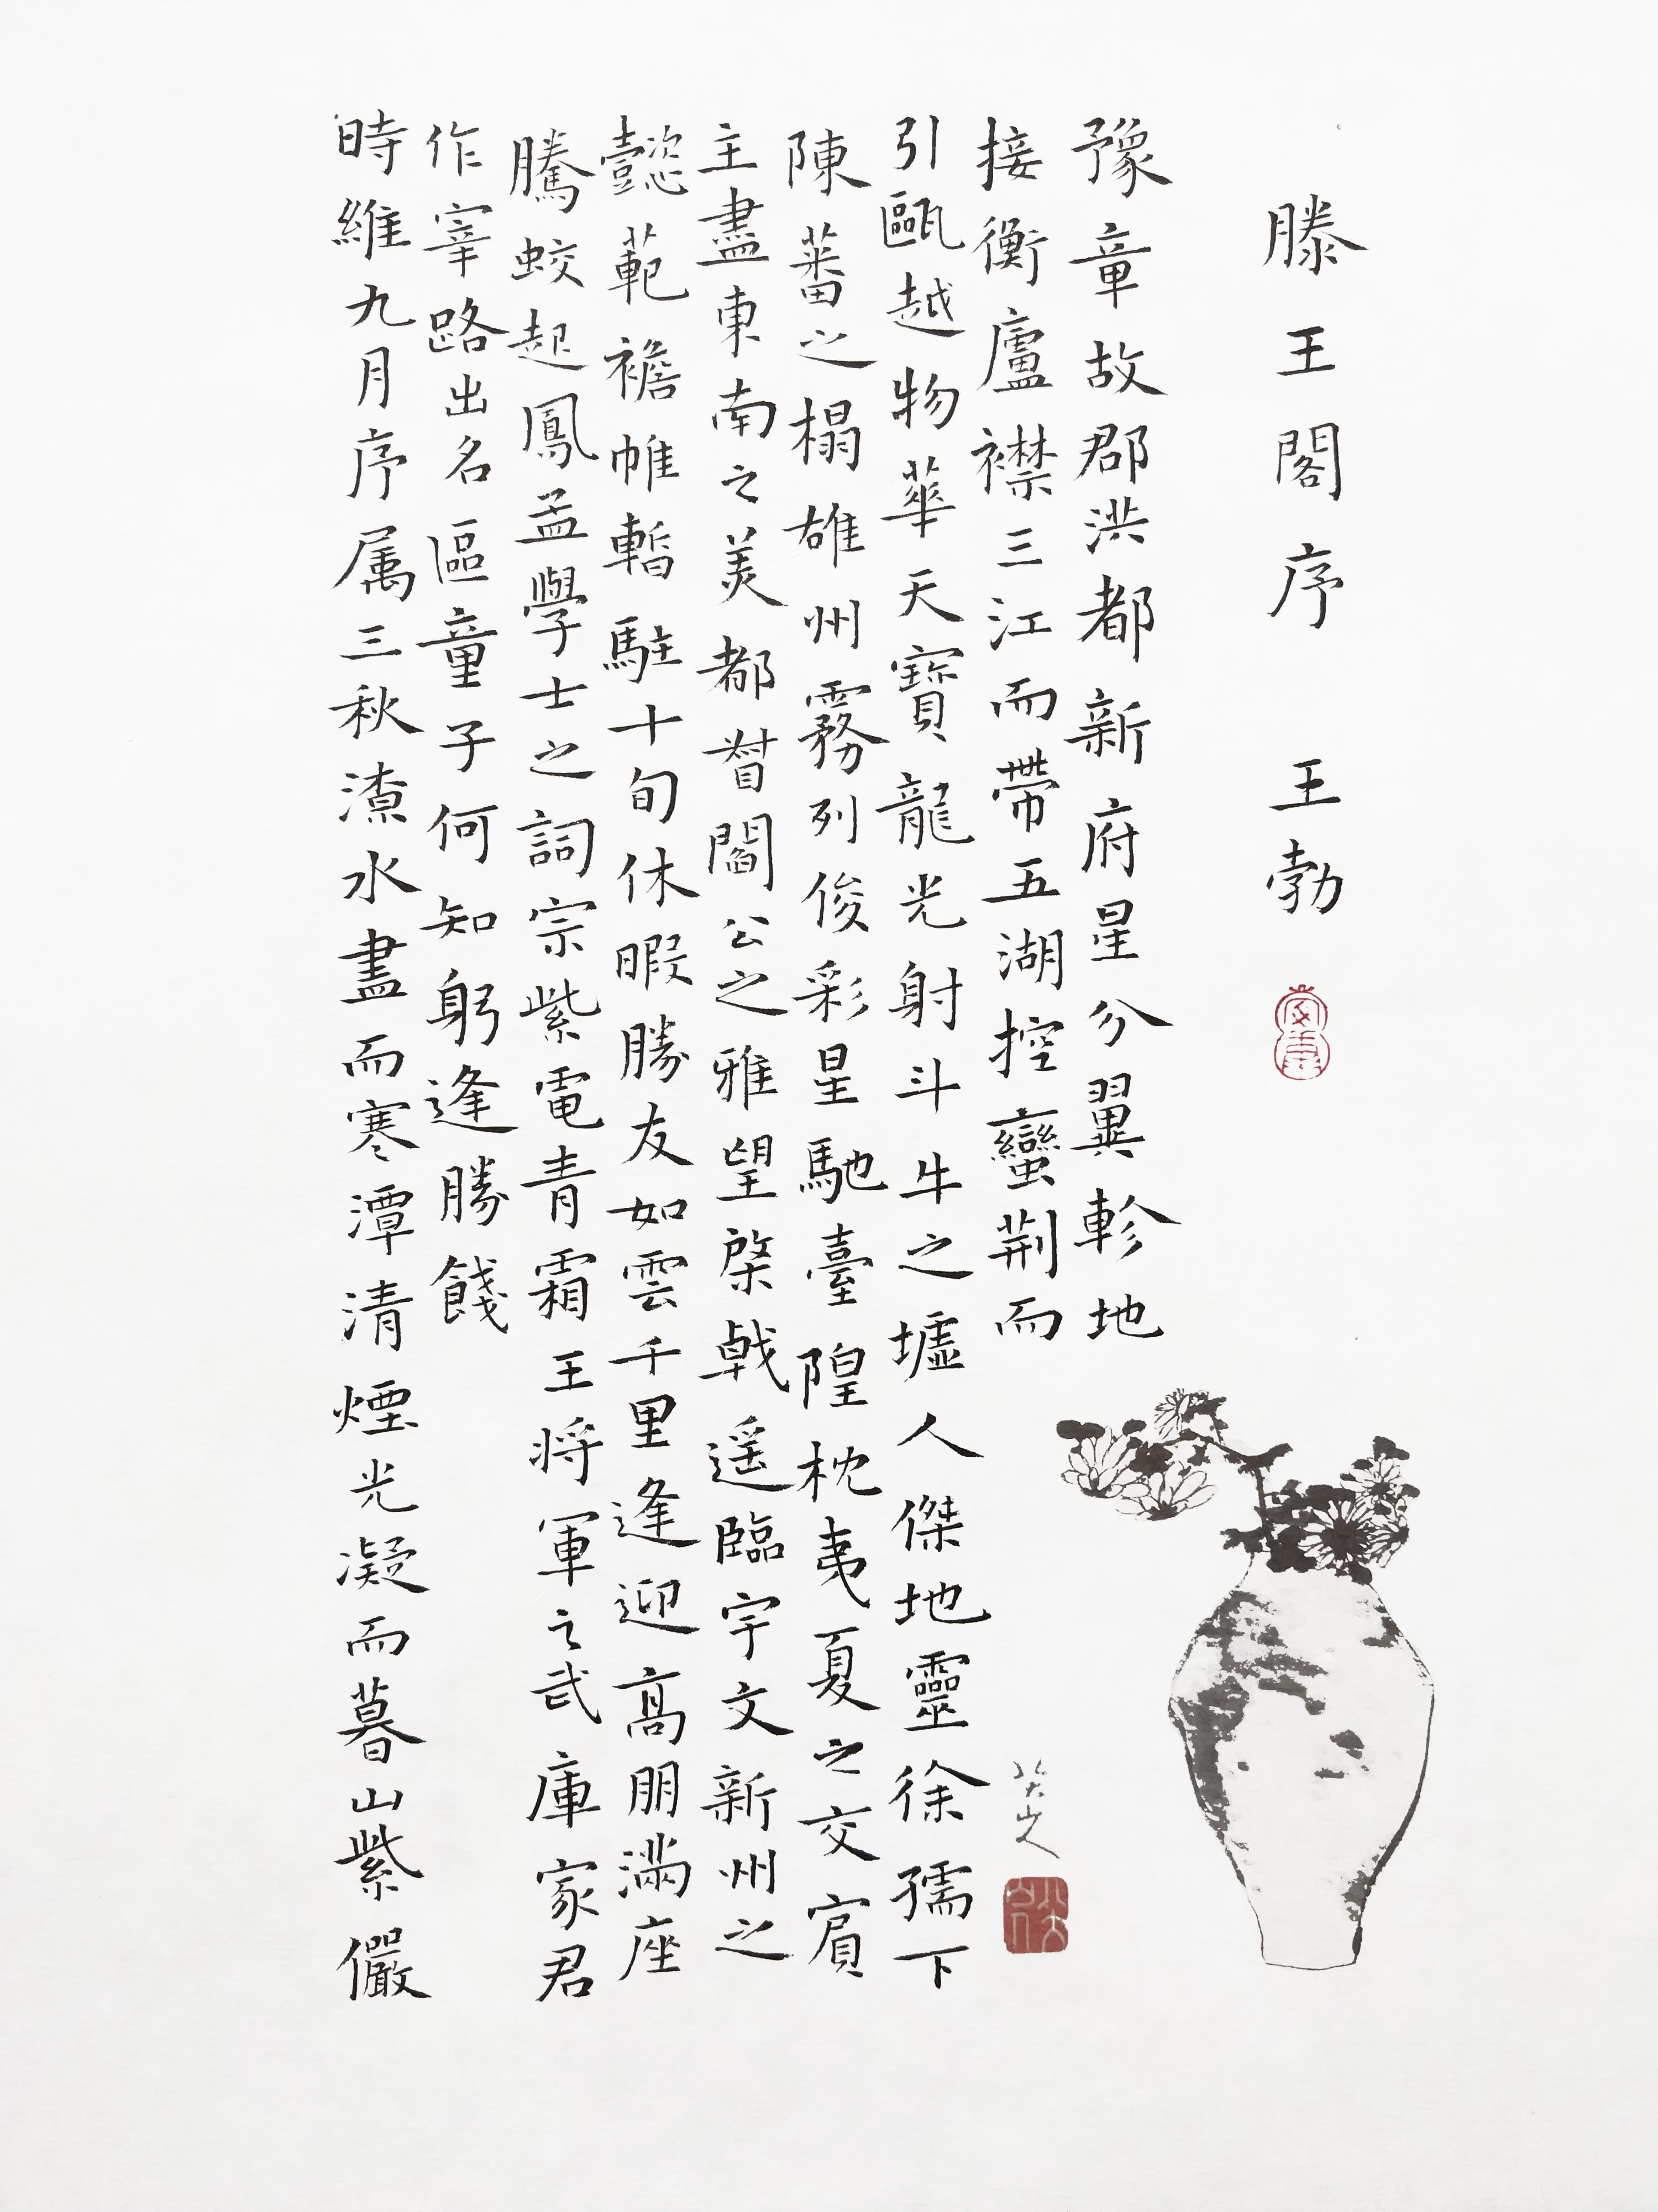 滕王閣序 王勃
豫章故郡洪都新府星分翼軫地
接衡廬襟三江而帶五湖控蠻荆而
引甌越物華天寶龍光射斗牛之墟人傑地靈徐孺下
陳蕃之榻雄州霧列俊彩星馳臺隍枕夷夏之交賓
主盡東南之美都督閻公之雅望棨戟遥臨宇文新州之
懿範襜帷暫駐十旬休暇勝友如雲千里逢迎高朋滿座
騰蛟起鳳孟學士之詞宗紫電青霜王将軍之武庫家君
作宰路出名區童子何知躬逢勝餞
時維九月序属三秋潦水盡而寒潭清煙光凝而暮山紫儼
八大山人